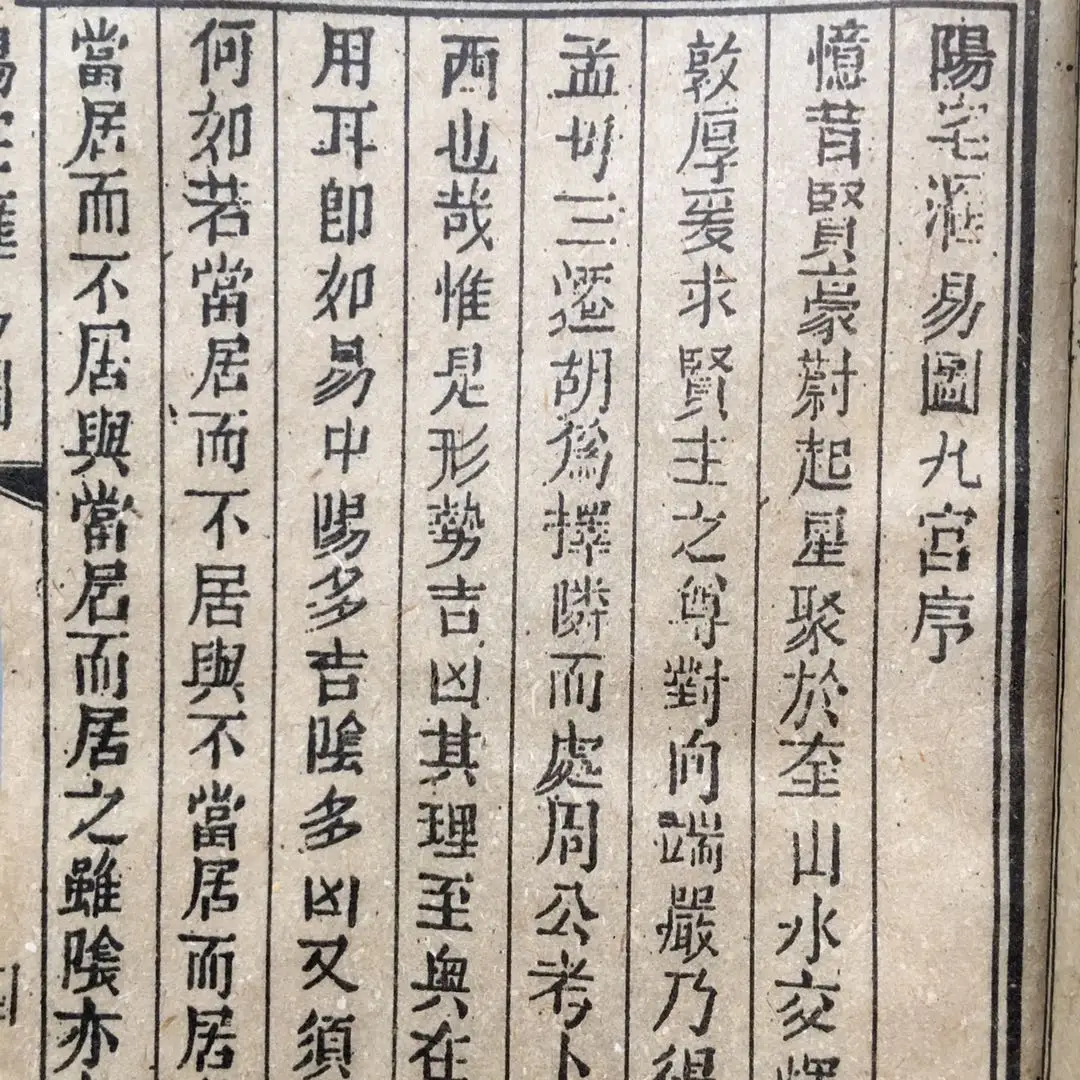 陽宅滙易圖九宮序
憶昔賢豪蔚起星聚於奎山水交輝
敦厚爰求賢主之尊對向端嚴乃得
孟母三遷胡為擇隣而處周公考卜
西也哉惟是形勢吉凶其理至奥在
用耳即如易中陽多吉陰多凶又須
何如若當居而不居與不當居而居
當居而不居與當居而居之雖陰亦